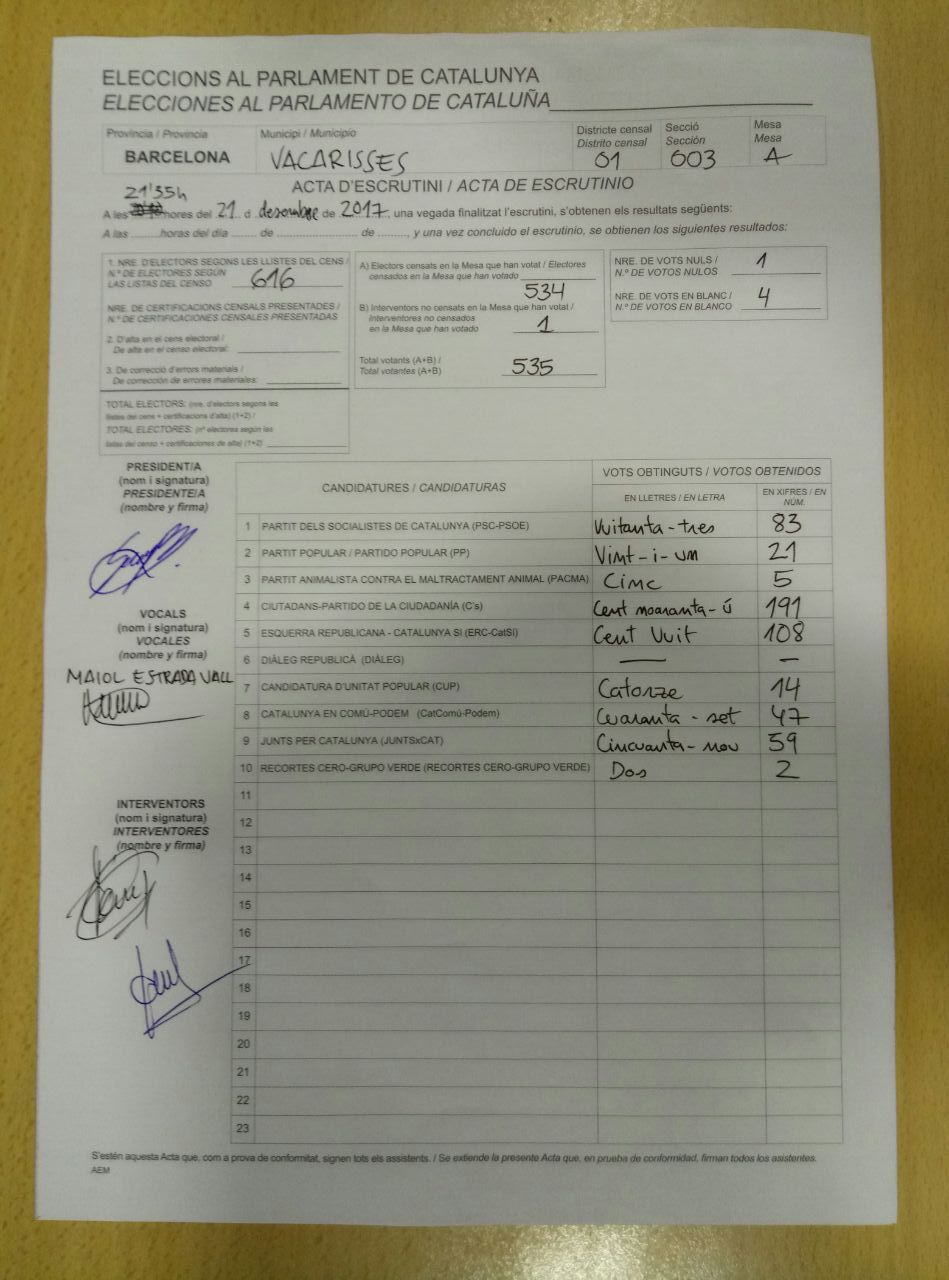 ELECCIONS AL PARLAMENT DE CATALUNYA
ELECCIONES AL PARLAMENTO DE CATALUÑA
Província / Provincia
BARCELONA
Municipi / Municipio
VACARISSES
Districte censal
Distrito censal
01
Secció
Sección
003
Mesa
Mesa
A
ACTA D'ESCRUTINI / ACTA DE ESCRUTINIO
21'35h
A les hores del 21 d desembre de 2017, una vegada finalitzat l'escrutini, s'obtenen els resultats següents:
A las ......... horas del día ......... de ........................... de ........., y una vez concluido el escrutinio, se obtienen los siguientes resultados:
1. NRE. D'ELECTORS SEGONS LES LLISTES DEL CENS /
N.º DE ELECTORES SEGÚN
LAS LISTAS DEL CENSO 616
NRE. DE CERTIFICACIONS CENSALS PRESENTADES /
N.º DE CERTIFICACIONES CENSALES PRESENTADAS
2. D'alta en el cens electoral /
De alta en el censo electoral:
3. De correcció d'errors materials /
De corrección de errores materiales:
TOTAL ELECTORS: (nre. d'electors segons les
llistes del cens + certificacions d'alta) (1+2) /
TOTAL ELECTORES: (nº electores según las
listas del censo + certificaciones de alta) (1+2)
A) Electors censats en la Mesa que han votat / Electores
censados en la Mesa que han votado
534
B) Interventors no censats en la Mesa que han votat /
Interventores no censados
en la Mesa que han votado 1
Total votants (A+B) /
Total votantes (A+B) 535
NRE. DE VOTS NULS /
N.º DE VOTOS NULOS 1
NRE. DE VOTS EN BLANC /
N.º DE VOTOS EN BLANCO 4
PRESIDENT/A
(nom i signatura)
PRESIDENTE/A
(nombre y firma)
VOCALS
(nom i signatura)
VOCALES
(nombre y firma)
MAIOL ESTRADA VALL
INTERVENTORS
(nom i signatura)
INTERVENTORES
(nombre y firma)
CANDIDATURES / CANDIDATURAS
VOTS OBTINGUTS / VOTOS OBTENIDOS
EN LLETRES / EN LETRA
EN XIFRES / EN NÚM.
1 PARTIT DELS SOCIALISTES DE CATALUNYA (PSC-PSOE) Vuitanta-tres 83
2 PARTIT POPULAR / PARTIDO POPULAR (PP) Vint-i-un 21
3 PARTIT ANIMALISTA CONTRA EL MALTRACTAMENT ANIMAL (PACMA) Cinc 5
4 CIUTADANS-PARTIDO DE LA CIUDADANÍA (C's) Cent noaranta-ú 191
5 ESQUERRA REPUBLICANA - CATALUNYA SÍ (ERC-CatSí) Cent Vuit 108
6 DIÀLEG REPUBLICÀ (DIÀLEG) — —
7 CANDIDATURA D'UNITAT POPULAR (CUP) Catorze 14
8 CATALUNYA EN COMÚ-PODEM (CatComú-Podem) Cuaranta - set 47
9 JUNTS PER CATALUNYA (JUNTSxCAT) Cincuanta-nou 59
10 RECORTES CERO-GRUPO VERDE (RECORTES CERO-GRUPO VERDE) Dos 2
11
12
13
14
15
16
17
18
19
20
21
22
23
S'estén aquesta Acta que, com a prova de conformitat, signen tots els assistents. / Se extiende la presente Acta que, en prueba de conformidad, firman todos los asistentes.
AEM